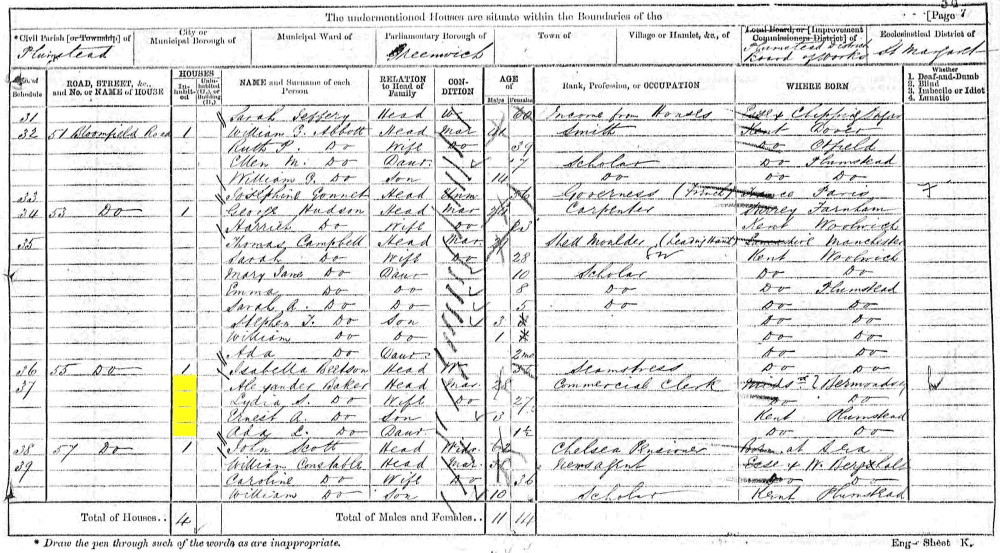 The undermentioned Houses are situate within the Boundaries of the
[Page 7
*Civil Parish [or Township] of
Plumstead
City or
Municipal Borough of
Municipal Ward of
Parliamentary Borough of
Greenwich
Town of
Village or Hamlet, &c., of
Local Board, or [Improvement
Commissioners District] of
Plumstead District
Board of Works
Ecclesiastical District of
St Margaret
No. of
Schedule
ROAD, STREET, &c.,
and No. or NAME of HOUSE
HOUSES
In-
habited
Unin-
habited
(U.), or
Building
(B.)
NAME and Surname of each
Person
RELATION
to Head of
Family
CON-
DITION
AGE
of
Males
Females
Rank, Profession, or OCCUPATION
WHERE BORN
Whether
1. Deaf-and-Dumb
2. Blind
3. Imbecile or Idiot
4. Lunatic
31 Sarah Jeffery Head W 60 Income from Houses
32 51 Bloomfield Road 1 William G. Abbott Head Mar Smith Kent Dover
Ruth P. Do Wife Do 39 Do
Ellen M. Do Daur 17 Scholar Do Plumstead
William G. Do Son 14 Do Do Do
33 Josephine Gonnet Head Unm 36 Governess (French) France Paris
34 53 Do 1 George Hudson Head Mar Carpenter Surrey Farnham
Harriet Do Wife Do 23 Kent Woolwich
35 Thomas Campbell Head Mar Shell Moulder (Leading Hand) Manchester
Sarah Do Wife Do 28 Kent Woolwich
Mary Jane Do Daur 10 Scholar Do Do
Emma Do Do 8 Do Do Plumstead
Sarah A. Do Do 5 Do Do Do
Stephen T. Do Son 3 Do Do
William Do Do 1 Do Do
Ada Do Daur 2mo Do Do
36 55 Do 1 Isabella Beetson Head W Seamstress Do Do
37 Alexander Baker Head Mar 28 Commercial Clerk Bermondsey
Lydia S. Do Wife Do 27 Do Do
Ernest A. Do Son 3 Kent Plumstead
Ada L. Do Daur Do Do
38 57 Do 1 John Scott Head Widr 62 Chelsea Pensioner Born at Sea
39 William Constable Head Mar Newsagent
Caroline Do Wife Do 36 Do Do
William Do Son 10 Scholar Kent Plumstead
Total of Houses.. 4
Total of Males and Females.. 11 14
* Draw the pen through such of the words as are inappropriate.
Eng- Sheet K.